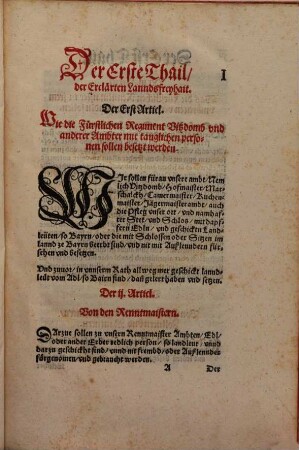 Der Erste Thail/
I
der Erclärten Lanndsfreyhait.
Der Erst Artícl.
Wie die Fürstlichen Regiment Vitzdomb vnd
anderer Ambter mit tanglichen perso-
nen sollen besetzt werden.
WIr sollen füran vnsere ambt/ Nem
lich Vitzdomb/ Hofmaister/ Mar-
schalckh/ Camermaister/ Kuchen
maister/ Jägermaister ambt/ auch
die Pfleg vnser ort/ vnd namhaff-
ter Stet/ vnd Schlos/ mit dapf-
fern Edln/ vnd geschickten Landt-
leüten/ so Bayrn/ oder die mit Schlossen oder Sitzen im
lannd ze Bayrn beerbt sind/ vnd nit mit Außlenndern für-
sehen vnd besetzen.
Vnd zuuor/ in vnnserm Rath allweg mer geschickt landt-
leüt vom Adl/ so Baien sind/ daß gelert haben vnd setzen.
Der ij. Artícl.
Von den Renntmaistern.
Darzue sollen zu vnsern Renntmaister Ambten/ Edl/
oder annder Erber redlich person/ so landleut/ vnnd
darzu geschickht sind/ vnnd nit frembd/ oder Außlennder
fürgenomen/ vnd gebraucht werden.
A
Der